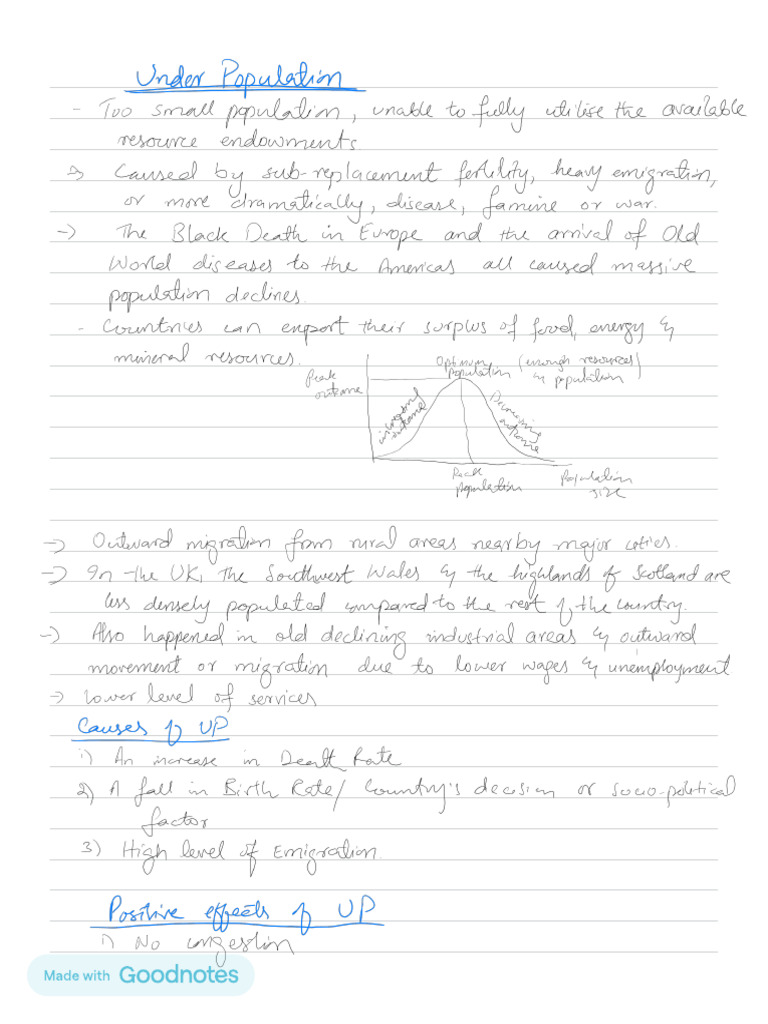 Under Population
- Too small population, unable to fully utilise the available
resource endowments
→ Caused by sub-replacement fertility, heavy emigration,
or more dramatically, disease, famine or war.
→ The Black Death in Europe and the arrival of Old
World diseases to the Americas all caused massive
population declines.
- Countries can export their surplus of food, energy &
mineral resources.
Optimum population (enough resources & population)
Peak outcome
increasing outcome
Decreasing outcome
Peak population
Population size
→ Outward migration from rural areas nearby major cities.
→ In the UK, The Southwest Wales & the highlands of Scotland are
less densely populated compared to the rest of the country.
→ Also happened in old declining industrial areas & outward
movement or migration due to lower wages & unemployment
→ Lower level of services
Causes of UP
1) An increase in Death Rate
2) A fall in Birth Rate/ Country's decision or socio-political
factor
3) High level of Emigration.
Positive effects of UP
1) No congestion
Made with Goodnotes